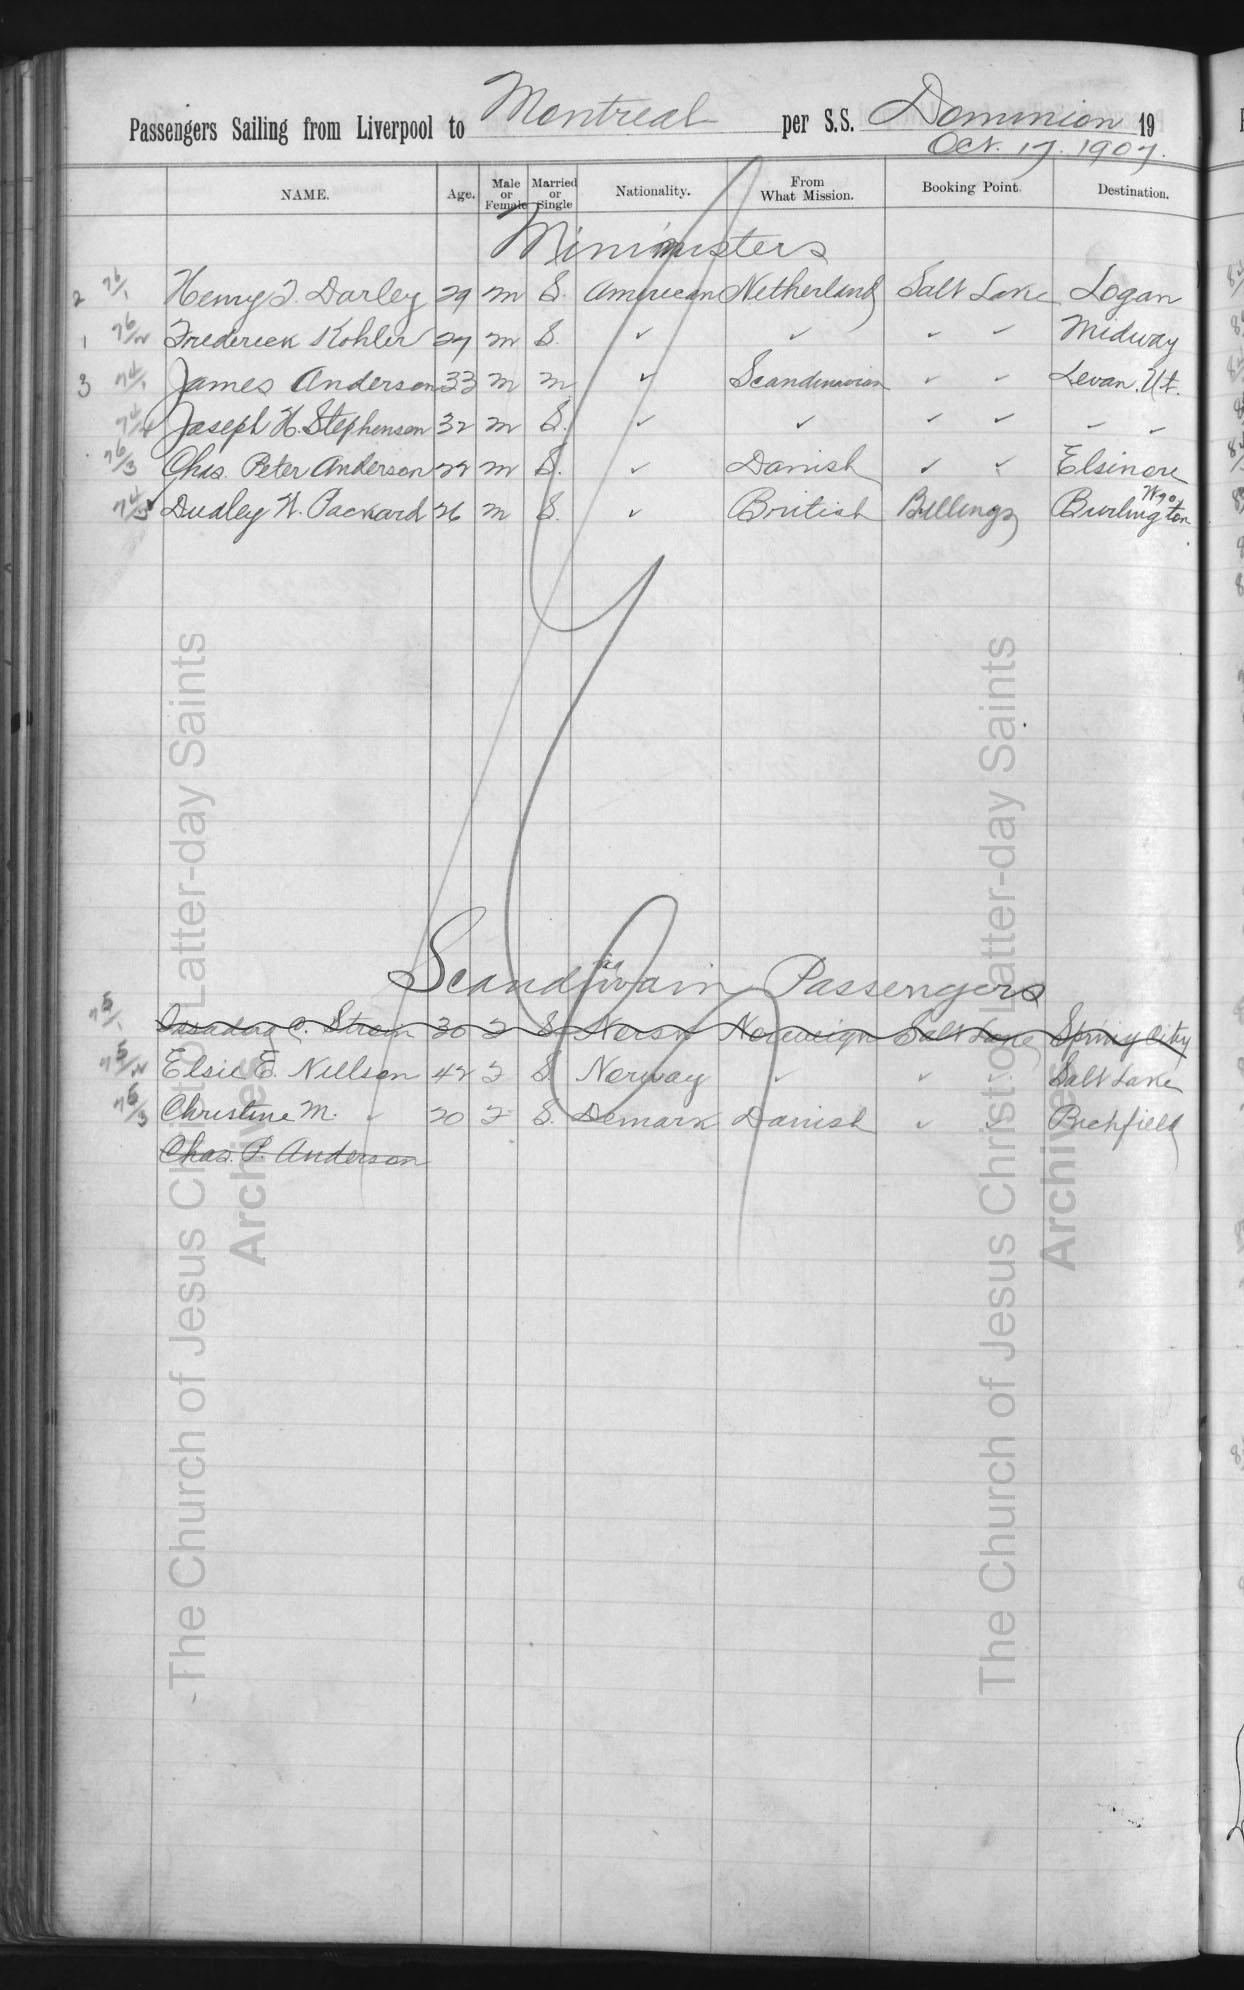 Passengers Sailing from Liverpool to Montreal per S.S. Dominion 19
Oct. 17. 1907.
NAME. Age. Male or Female Married or Single Nationality. From What Mission. Booking Point. Destination.
Ministers
2 76/1 Henry T. Darley 29 m S. American Netherland Salt Lake Logan
1 76/2 Frederick Kohler 27 m S. ✓ ✓ ✓ ✓ Midway
3 74/1 James Anderson 33 m m ✓ Scandinavian ✓ ✓ Levan, Ut.
74/2 Joseph H. Stephenson 32 m S. ✓ ✓ ✓ ✓ ✓ ✓
76/3 Chas. Peter Anderson 22 m S. ✓ Danish ✓ ✓ Elsinore
74/3 Dudley W. Packard 26 m S. ✓ British Billings Burlington Wyo.
Scandinavain Passengers
75/1 C. Strom 30 S. Norw Norweign Salt Lake Spring City
75/2 Elsie E. Nillson 42 F S. Norway ✓ ✓ ✓ Salt Lake
76/3 Christine M. ✓ 20 F S. Demark Danish ✓ ✓ Richfield
Chas. P. Anderson
The Church of Jesus Christ of Latter-day Saints
Archives
The Church of Jesus Christ of Latter-day Saints
Archives